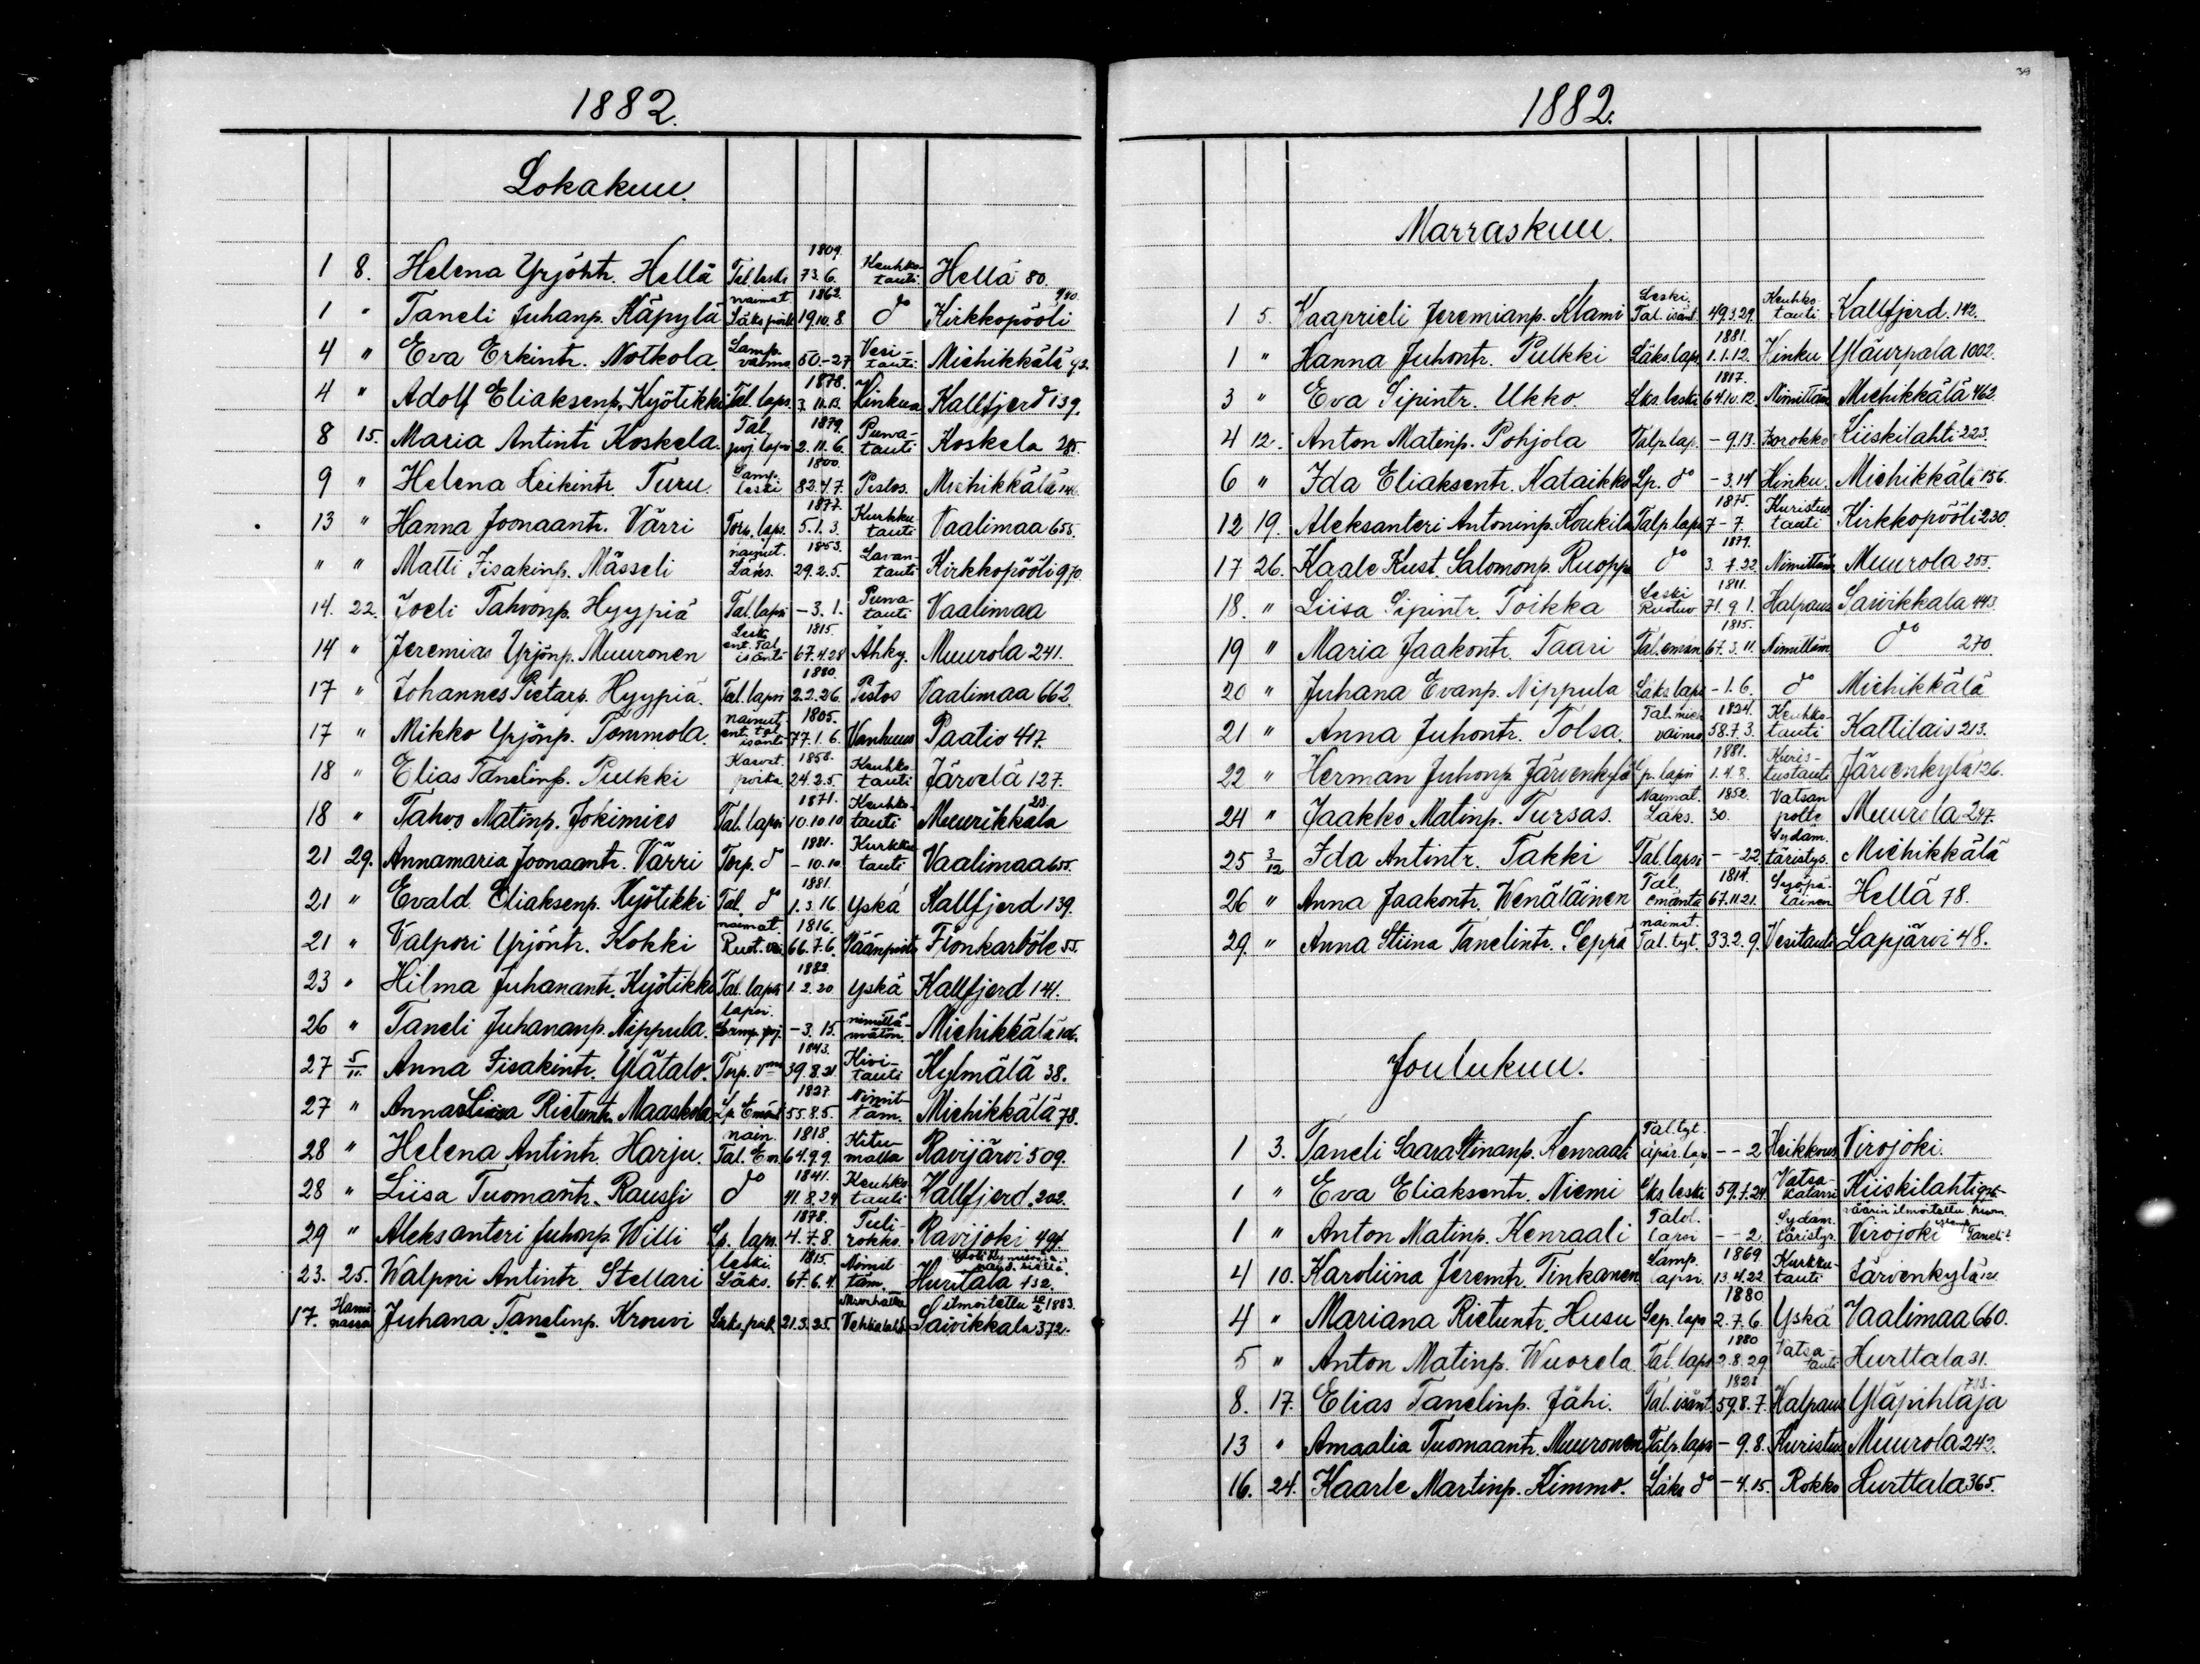 1882.
Lokakuu.
1 8. Helena Yrjöntr. Hellä Tal. leski 1809. 73.6. Keuhkotauti Hellä 80.
1 " Taneli Juhanp. Käpylä naimat. Läks poik 1862. 19.10.8 do Kirkkopööli 980.
4 " Eva Erkintr. Notkola Lamp. vaimo 50.-27 Vesitauti Miehikkälä 92.
4 " Adolf Eliaksenp. Kyötikki Tal. laps. 1878. 3.11.13. Hinku Kallfjerd 139.
8 15. Maria Antintr. Koskela Tal. poj. lapsi 1879. 2.11.6. Puna-tauti Koskela 285.
9 " Helena Heikintr. Turu. Lamp. leski 1800. 82.4.7. Pistos. Miehikkälä 146.
13 " Hanna Joonaantr. Värri Torp. laps. 1877. 5.1.3. Kurkkutauti Vaalimaa 655.
" " Matti Iisakinp. Mässeli naimat. Läks. 1853. 29.2.5. Lavantauti Kirkkopööli 970
14. 22. Joeli Tahvonp. Hyypiä Tal. lapsi -3.1. Punatauti Vaalimaa
14 " Jeremias Yrjönp. Muuronen Leski ent. Tal. isäntä 1815. 67.4.28 Ähky. Muurola 241.
17 " Johannes Pietarp. Hyypiä. Tal. lapsi 1880. 2.2.26 Pistos Vaalimaa 662.
17 " Mikko Yrjönp. Tommola. naimut. ent. tal. isäntä 1805. 77.1.6. Vanhuus Paatio 417.
18 " Elias Tanelinp. Pulkki Kasvat. poika 1858. 24.2.5 Keuhkotauti Järvelä 127.
18 " Tahvo Matinp. Jokimies Tal. lapsi 1871. 10.10.10 Keuhkotauti Muurikkala 213.
21 29. Annamaria Joonaantr. Värri Torp. do 1881. -10.10 Kurkkutauti Vaalimaa 655.
21 " Evald Eliaksenp. Kyötikki Tal. do 1881. 1.3.16 Yskä Kallfjerd 139.
21 " Valpori Yrjöntr. Kokki naimat. Ruot. vai 1816. 66.7.6. Väänpisto Flonkarböle 55.
23 " Hilma Juhanantr. Kyötikki Tal. lapsi 1882. 1.2.20 Yskä Kallfjerd 141.
26 " Taneli Juhananp. Nippula. lapsi. Lamp. poj. -3.15. nimittämätön. Miehikkälä 106.
27 5/11. Anna Iisakintr. Ylätalo. Torp. vmo 1843. 39.8.21. Kivitauti Kylmälä 38.
27 " Anna Liisa Rietuntr. Maaskola Lp. Emänt 1827. 55.8.5. Nimittäm. Miehikkälä 78.
28 " Helena Antintr. Harju. nain. Tal. Em. 1818. 64.9.9. Kitumalla Ravijärvi 509.
28 " Liisa Tuomantr. Rausti do 1841. 41.8.24 Keuhkotauti Kallfjerd. 202.
29 " Aleksanteri Juhonp. Willi Lp. laps. 1878. 4.7.8 Tulirokko. Ravijoki 494
23. 25. Walpori Antintr. Stellari leski. Läks. 1815. 67.6.4. Nimittäm. Hurttala 132.
17. Haminassa Juhana Tanelinp. Krouvi Läks. poik 21.3.25. Saivikkala 372. ilmoitettu 10/2 1883.
39
1882.
Marraskuu.
1 5. Kaaprieli Jeremianp. Klami Leski. Tal. isänt. 49.3.29. Keuhkotauti Kallfjerd. 142.
1 " Hanna Juhontr. Pulkki Läks. laps. 1881. 1.1.12. Hinku Yläurpala 1002.
3 " Eva Sipintr. Ukko. Lks. leski 1817. 64.10.12. Nimittäm Miehikkälä 462.
4 12. Anton Matinp. Pohjola Talp. lap. -9.13. Isorokko Kiiskilahti 223.
6 " Ida Eliaksentr. Kataikko Lp. do -3.14 Hinku. Miehikkälä 156.
12 19. Aleksanteri Antoninp. Koukila Talp. laps 1875. 7-7. Kuristustauti Kirkkopööli 230.
17 26. Kaale Kust. Salomonp. Ruoppa do 1879. 3.7.22 Nimittäm Muurola 255.
18. " Liisa Sipintr. Toikka Leski Ruotuv 1811. 71.9.1. Halpaus Saivikkala 443.
19 " Maria Jaakontr. Taari Tal. emän 1815. 67.3.11. Nimittäm do 270.
20 " Juhana Evanp. Nippula Läks laps -1.6. do Miehikkälä
21 " Anna Juhontr. Tolsa. Tal. mieh vaimo 1824. 58.7.3. Keuhkotauti Kattilais 213.
22 " Herman Juhonp. Järvenkylä Lp. lapsi 1881. 1.4.8. Kuristustauti Järvenkylä 126.
24 " Jaakko Matinp. Tursas. Naimat. Läks. 1852. 30. Vatsan polte Muurola 247.
25 3/12 Ida Antintr. Takki Tal. lapsi - -22. Sydäm. täristys. Miehikkälä
26 " Anna Jaakontr. Wenäläinen Tal. emäntä 1814. 67.11.21. Syöpäläinen Hellä 78.
29. " Anna Stiina Tanelintr. Seppä naimat. Tal. tyt. 33.2.9. Vesitauti Lapjärvi 48.
Joulukuu.
1 3. Taneli Saara Stinanp. Kenraali Tal. tyt. äpär. lap. - -2 Heikkous Virojoki.
1 " Eva Eliaksentr. Niemi Lks. leski 59.7.24 Vatsakatarri Kiiskilahti
1 " Anton Matinp. Kenraali Talol. lapsi - -2 Sydäm. täristys. Virojoki väärin ilmoitettu, Taneli?
4 10. Karoliina Jeremtr. Tinkanen Lamp. lapsi. 1869 13.4.22 Kurkkutauti Järvenkylä 121.
4 " Mariana Rietuntr. Husu Sep. laps 1880 2.7.6. Yskä Vaalimaa 660.
5 " Anton Matinp. Wuorela Tal. laps 1880 2.8.29. Vatsatauti Hurttala 31.
8. 17. Elias Tanelinp. Jähi. Tal. isänt. 1823 59.8.7. Halpaus Yläpihlaja 713.
13 " Amaalia Tuomaantr. Muuronen Talp. laps -9.8. Kuristus Muurola 242.
16. 24. Kaarle Martinp. Kimmo. Läks do -4.15. Rokko Hurttala 365.